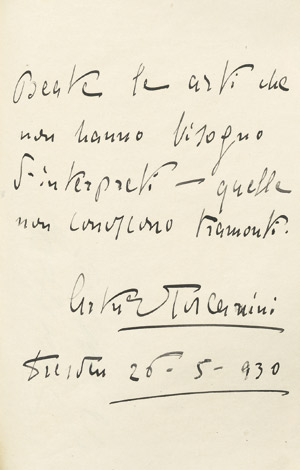 Beate le arti che
non hanno bisogno
d'interpreti — quelle
non conoscono tramonti.
Arturo Toscanini
Dresden 26 - 5 - 930